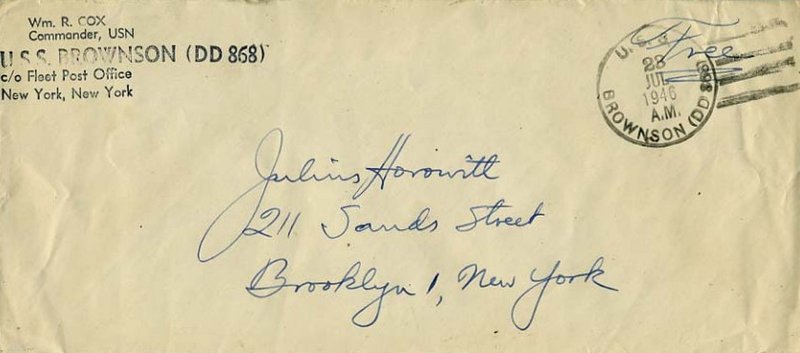 Wm. R. COX
Commander, USN
U.S.S. BROWNSON (DD 868)
c/o Fleet Post Office
New York, New York
Free
U.S.S.
28
JUL
1946
A.M.
BROWNSON (DD 868)
Julius Horowitt
211 Sands Street
Brooklyn 1, New York